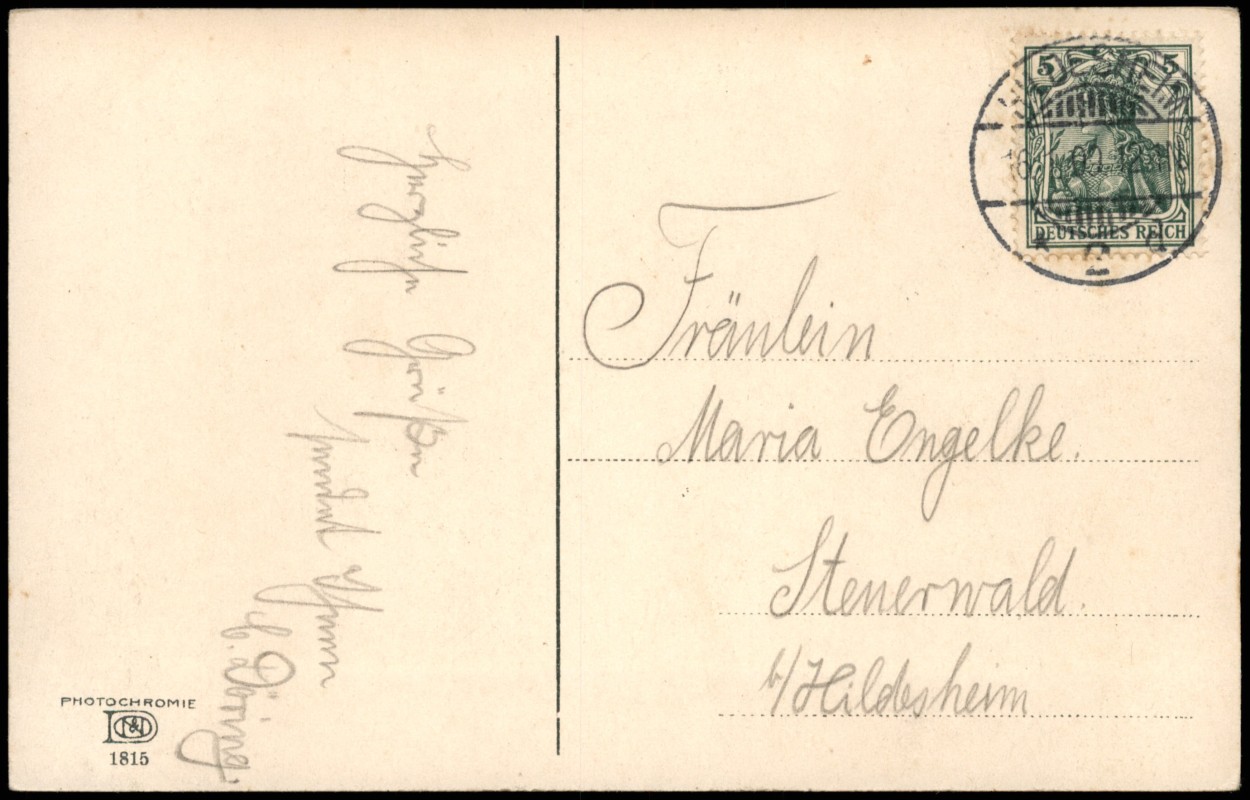 Herzliche Grüße
sendet Ihnen
Döring
PHOTOCHROMIE
N&D
1815
5 5
HILDESHEIM
DEUTSCHES REICH
Fräulein
Maria Engelke.
Steuerwald.
b/Hildesheim